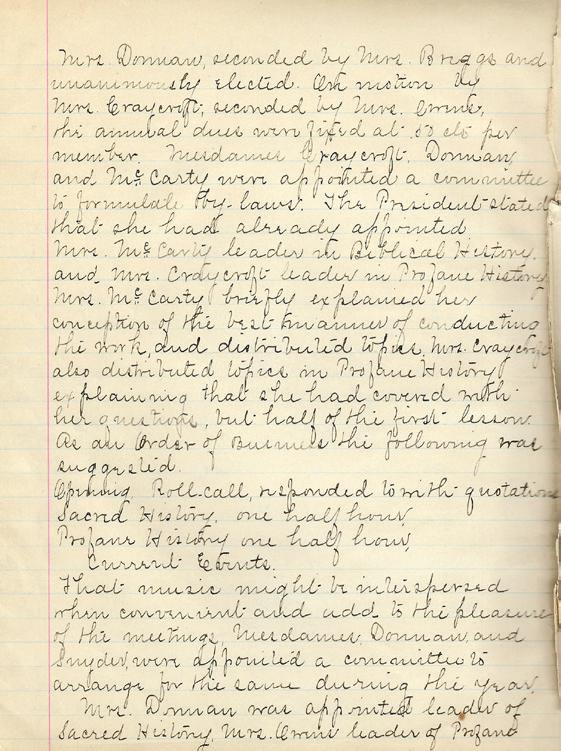 Mrs. Donnan, seconded by Mrs. Briggs and
unanimously elected. On motion by
Mrs. Craycroft, seconded by Mrs. Owens,
the annual dues were fixed at 50 cts per
member. Mesdames Craycroft, Donnan,
and McCarty were appointed a committee
to formulate by-laws. The President stated
that she had already appointed
Mrs. McCarty leader in Biblical History,
and Mrs. Craycroft leader in Profane History
Mrs. McCarty briefly explained her
conception of the best manner of conducting
the work, and distributed topics. Mrs. Craycroft
also distributed topics in Profane History
explaining that she had covered with
her questions, but half of the first lesson.
As an Order of Business the following was
suggested.
Opening Roll-call, responded to with quotations
Sacred History, one half hour,
Profane History one half hour,
Current Events.
That music might be interspersed
when convenient and add to the pleasure
of the meetings, Mesdames, Donnan, and
Snyder, were appointed a committee to
arrange for the same during the year.
Mrs. Donnan was appointed leader of
Sacred History, Mrs. Owens leader of Profane